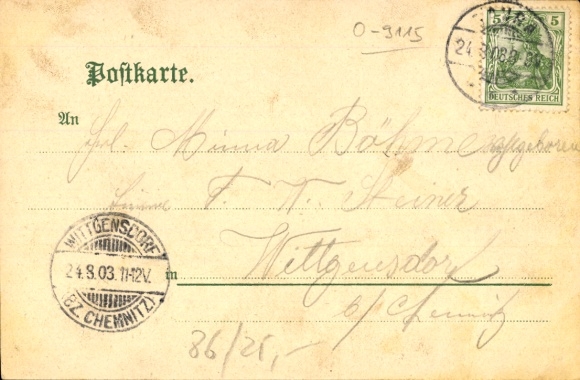 O-9115
5 5
24.8.03.
DEUTSCHES REICH
Postkarte.
An Frl. Minna Böhme
F. W. Steiner
WITTGENSDORF
24.8.03. 11-12V.
(BZ. CHEMNITZ)
in Wittgensdorf
b/Chemnitz
86/25,-